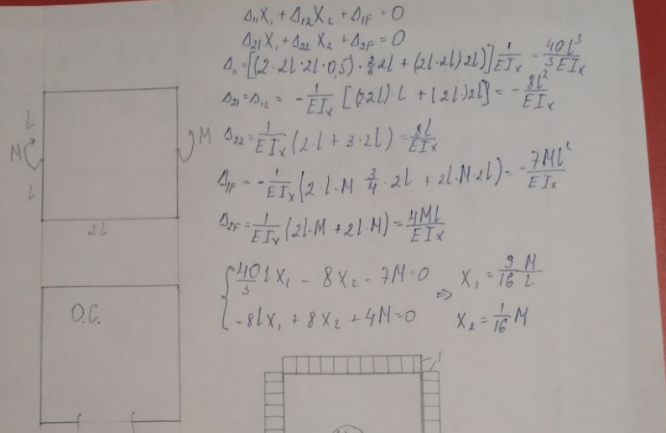 Δ₁₁X₁ + Δ₁₂X₂ + Δ₁F = 0
Δ₂₁X₁ + Δ₂₂X₂ + Δ₂F = 0
Δ₁₁ = [(2·2l·2l·0,5)·⅔2l + (2l·2l)2l] 1/EIx = 40l³/3EIx
Δ₂₁ = Δ₁₂ = -1/EIx [(2·2l)·l + (2l)2l] = -8l²/EIx
Δ₂₂ = 1/EIx (2·l + 3·2l) = 8l/EIx
Δ₁F = -1/EIx (2·l·M ¾·2l + 2l·M·2l) = -7Ml²/EIx
Δ₂F = 1/EIx (2l·M + 2l·M) = 4Ml/EIx
40/3 lX₁ - 8X₂ - 7M = 0 ⇒ X₁ = 9/16 M/l
-8lX₁ + 8X₂ + 4M = 0 X₂ = 1/16 M
l
M
M
l
2l
О.С.
1